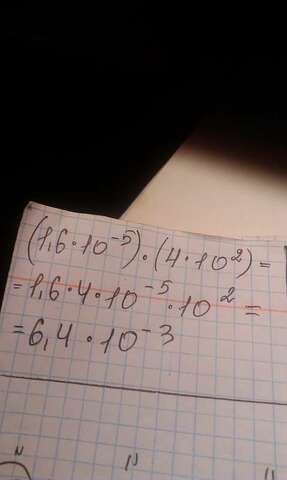 (1,6·10⁻⁵)·(4·10²)=
=1,6·4·10⁻⁵·10²=
=6,4·10⁻³